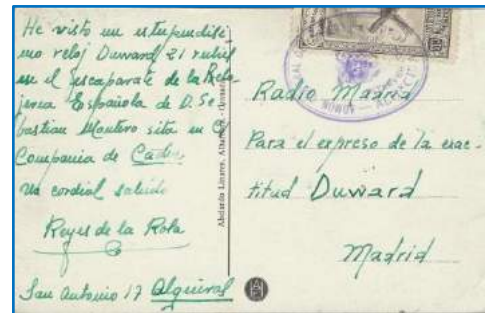 He visto un estupendisi-
mo reloj Duward 21 rubis
en el escaparate de la Relo-
jeria Española de D. Se-
bastian Montero sita en C/
Compania de Cadiz
Un cordial saludo
Reyes de la Rola
San Antonio 17 Algueral
Abelardo Linares,
Radio Madrid
Para el expreso de la exac-
titud Duward
Madrid